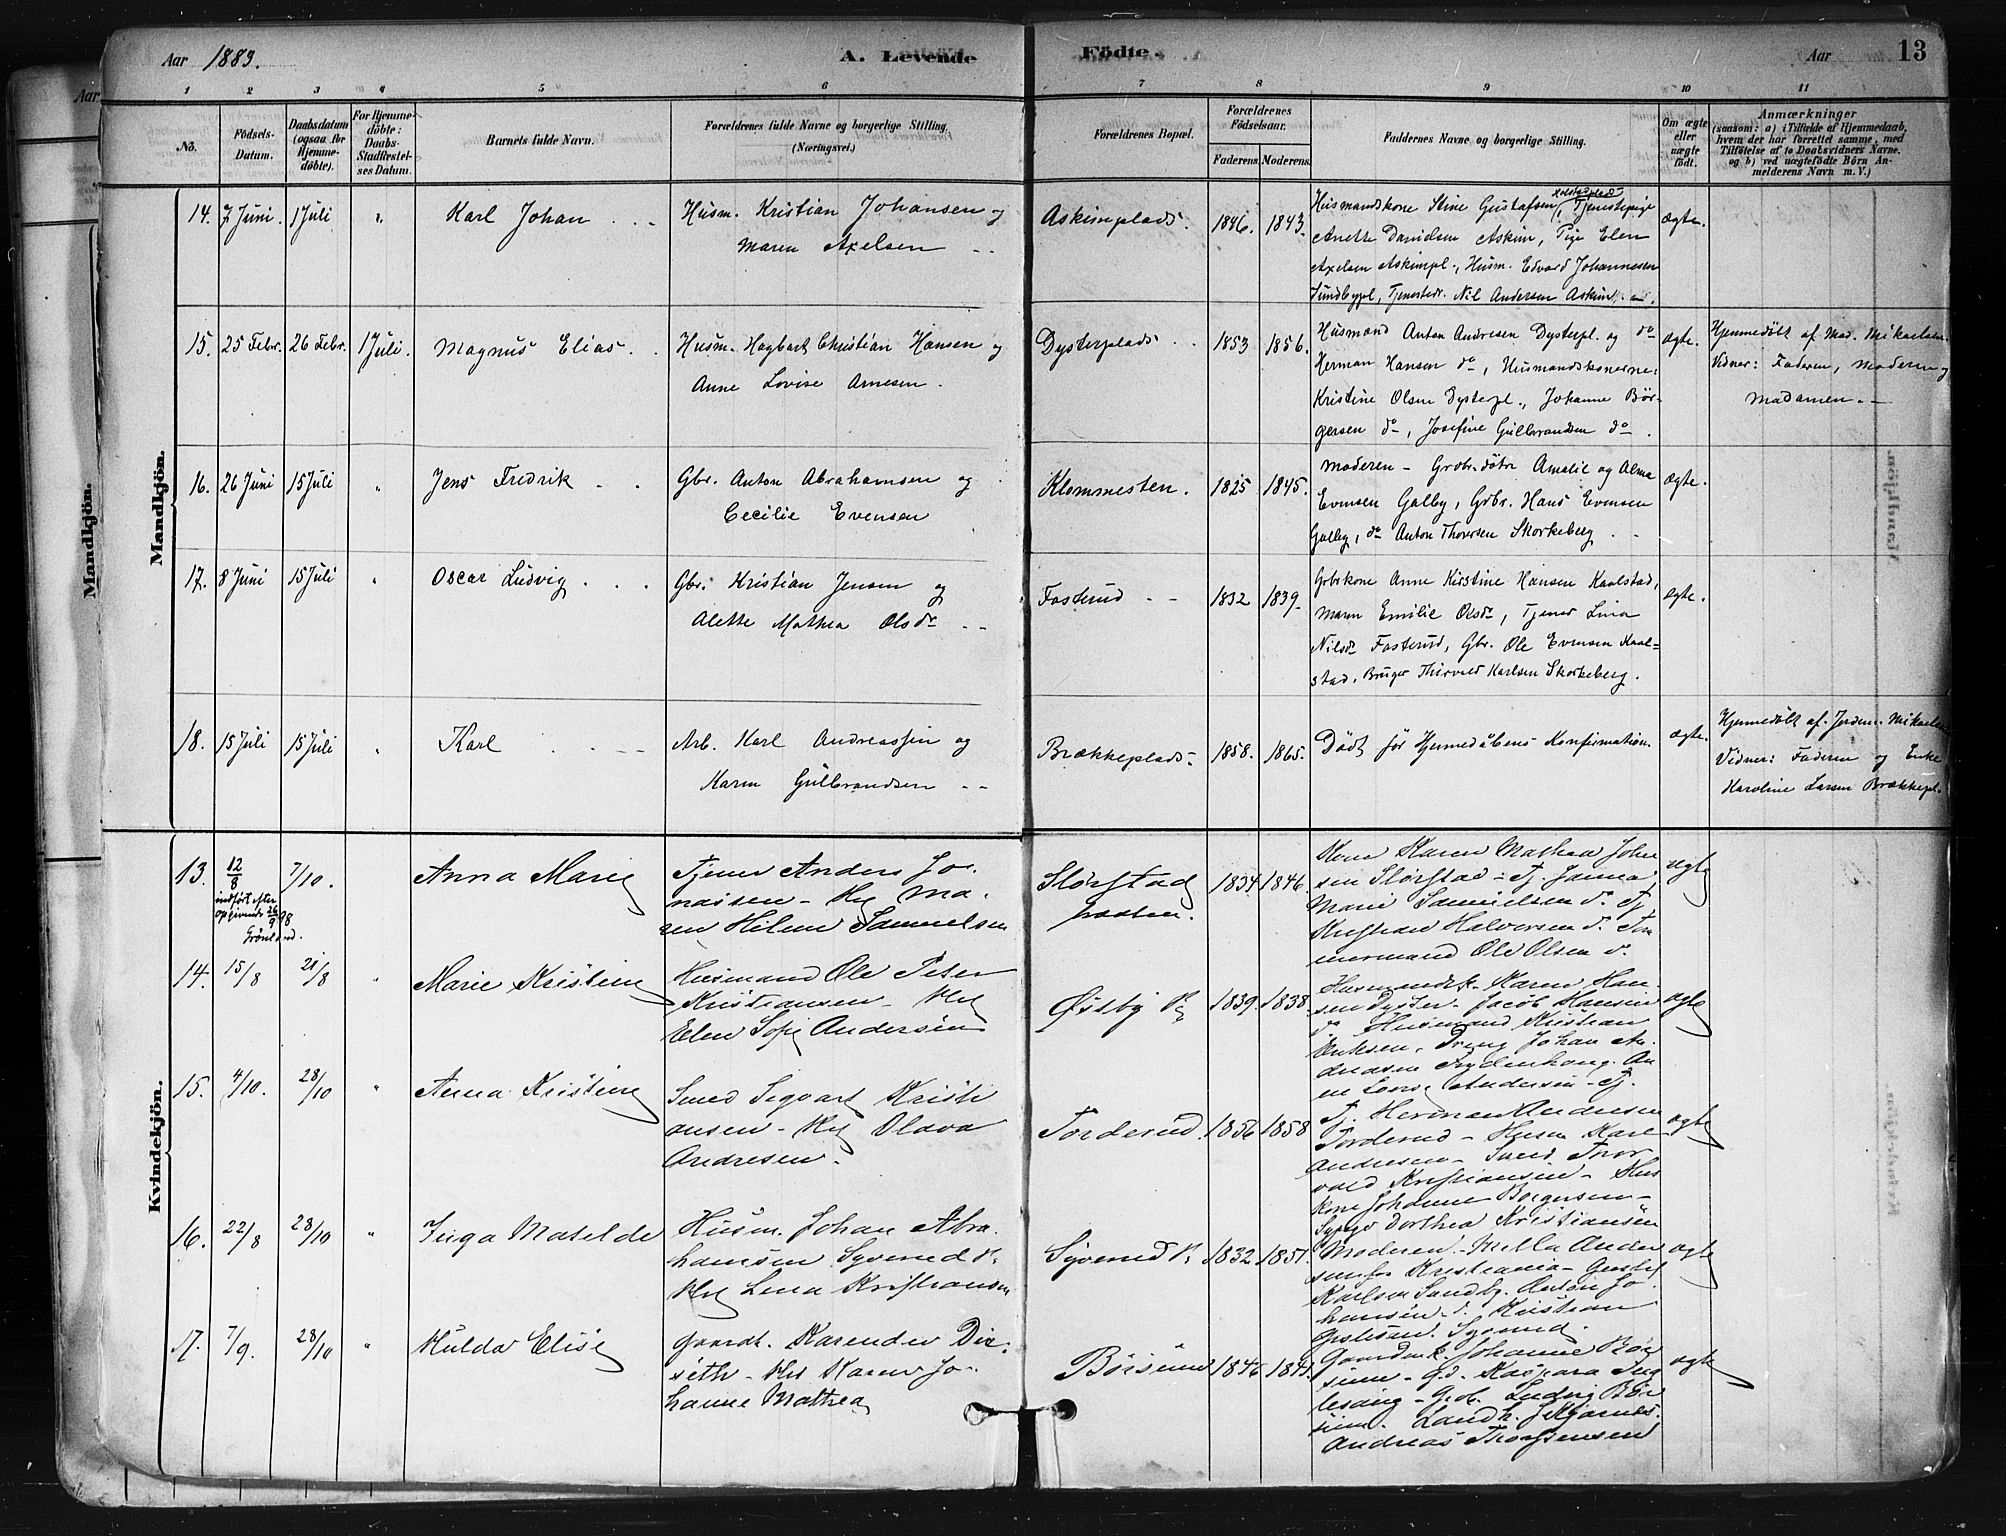 Aar 1883.
A. Levende
Födte.
Aar
13
1 2 3 4 5 6 7 8 9 10 11
No.
Födsels-
Datum.
Daabsdatum
(ogsaa for
Hjemme-
döbte).
For Hjemme-
döbte:
Daabs-
Stadfæstel-
ses Datum.
Barnets fulde Navn.
Forældrenes fulde Navne og borgerlige Stilling.
(Næringsvei.)
Forældrenes Bopæl.
Forældrenes
Födselsaar.
Faderens. Moderens.
Faddernes Navne og borgerlige Stilling.
Om ægte
eller
uægte
födt.
Anmærkninger
(saasom: a) i Tilfælde af Hjemmedaab,
hvem der har forrettet samme, med
Tilföielse af to Daabsvidners Navne,
og b) ved uægtefödte Börn An-
melderens Navn m. V.)
Mandkjön.
Mandkjön.
14. 7 Juni. 1 Juli " Karl Johan
Husm. Kristian Johansen og
Maren Axelsen
Askimplads. 1846. 1843.
Husmandskone Stine Gustafsen, Tjenestepige
Anette Danielsen Askim, Pige Elen
Axelsen Askimpl., Husm. Edvard Johannesen
Sundbypl, Tjenestedr. Nil Andersen Askim.
ægte.
15. 25 Febr. 26 Febr. 1 Juli. Magnus Elias
Husm. Hagbart Christian Hansen og
Anne Lovise Arnesen.
Dysterplads 1853 1856.
Husmænd Anton Andresen Dysterpl. og do
Herman Hansen do, Husmandskonerne:
Kristine Olsen Dysterpl., Johanne Bör-
gersen do, Josefine Gulbrandsen do.
ægte.
Hjemmedöbt af Mad. Mikaelsen
Vidner: Faderen, Moderen og
Madamen.
16. 26 Juni 15 Juli " Jens Fredrik
Gbr. Anton Abrahamsen og
Cecilie Evensen
Klommesten. 1825 1845.
Moderen - Grbr.döttre Amalie og Alma
Evensen Galby, Grbr. Hans Evensen
Galby, do Anton Thoresen Skorkeberg
ægte.
17. 8 Juni 15 Juli " Oscar Ludvig
Gbr. Kristian Jensen og
Alette Mathea Olsdr
Fosterud 1832 1839.
Grbrkone Anne Kirstine Hansen Kaalstad,
Maren Emilie Olsdr, Tjener Lina
Nilsdr Fosterud, Gbr. Ole Evensen Kaal-
stad, Bruger Thorvald Karlsen Skorkeberg.
ægte.
18. 15 Juli 15 Juli " Karl
Arb. Karl Andreassen og
Karen Gulbrandsen
Brækkeplads 1858. 1865.
Död för Hjemmedåbens Konfirmation.
ægte.
Hjemmedöbt af Jordm. Mikaelsen
Vidner: Faderen og Enke
Karoline Larsen Brækkepl.
Kvindekjön.
13. 12/8 7/10. Anna Marie
indfört efter
opgivende 26/9 98
Grönland.
Tjener Anders Jo-
naisen - Hu Ma-
ren Helene Samuelsen
Slörstad
1834 1846.
Kone Karen Mathea Johan
sen Slörstad - Tj. Janna
Marie Samuelsen do Tj.
Kristian Halvorsen do Töm
mermand Ole Olsen do
ægte
14. 15/8 21/8 " Marie Kristine
Husmand Ole Peter
Kristiansen - Hu
Elen Sofie Andersen
Østby Pl 1839. 1838.
Husmandsk. Karen Han
sen Dyster - Jacob Hansen
do Husmand Kristian
Eriksen. Dreng Johan An
dresen Frydenhaug. An
ne Lovise Andersen - Tj.
ægte
15. 4/10. 28/10 " Anna Kristine
Smed Sigvart Kristi
ansen - Hu Olava
Andresen.
Torderud. 1856 1858
Tj. Herman Andresen
Torderud - Husm Karl
Andresen - Smed Thor
vald Kristiansen - Hus
kone Johanne Børgersen -
Sypige Dorthea Kristiansen
ægte
16. 22/8 28/10 " Inga Matilde
Husm. Johan Abra
hamsen Syverud Pl
Hu Lena Kristiansen
Syverud Pl 1832 1851.
Moderen. - Milla Ander
sen fra Kristiania - Gustaf
Karlsen Sundby. Anton Jo
hansen do. Kristian
Gustavsen Syverud.
ægte
17. 7/9. 28/10 " Hulda Elise
Gaardt. Karender Dir-
seth - Hu Karen Jo-
hanne Mathea
Börsum 1846 1841.
Gaardmk. Johanne Bör
sum - Gd. Kaspara Ing
lesaug - Grdb. Ludvig Bör
sum. Landh.
Andreas Thorstensen
ægte